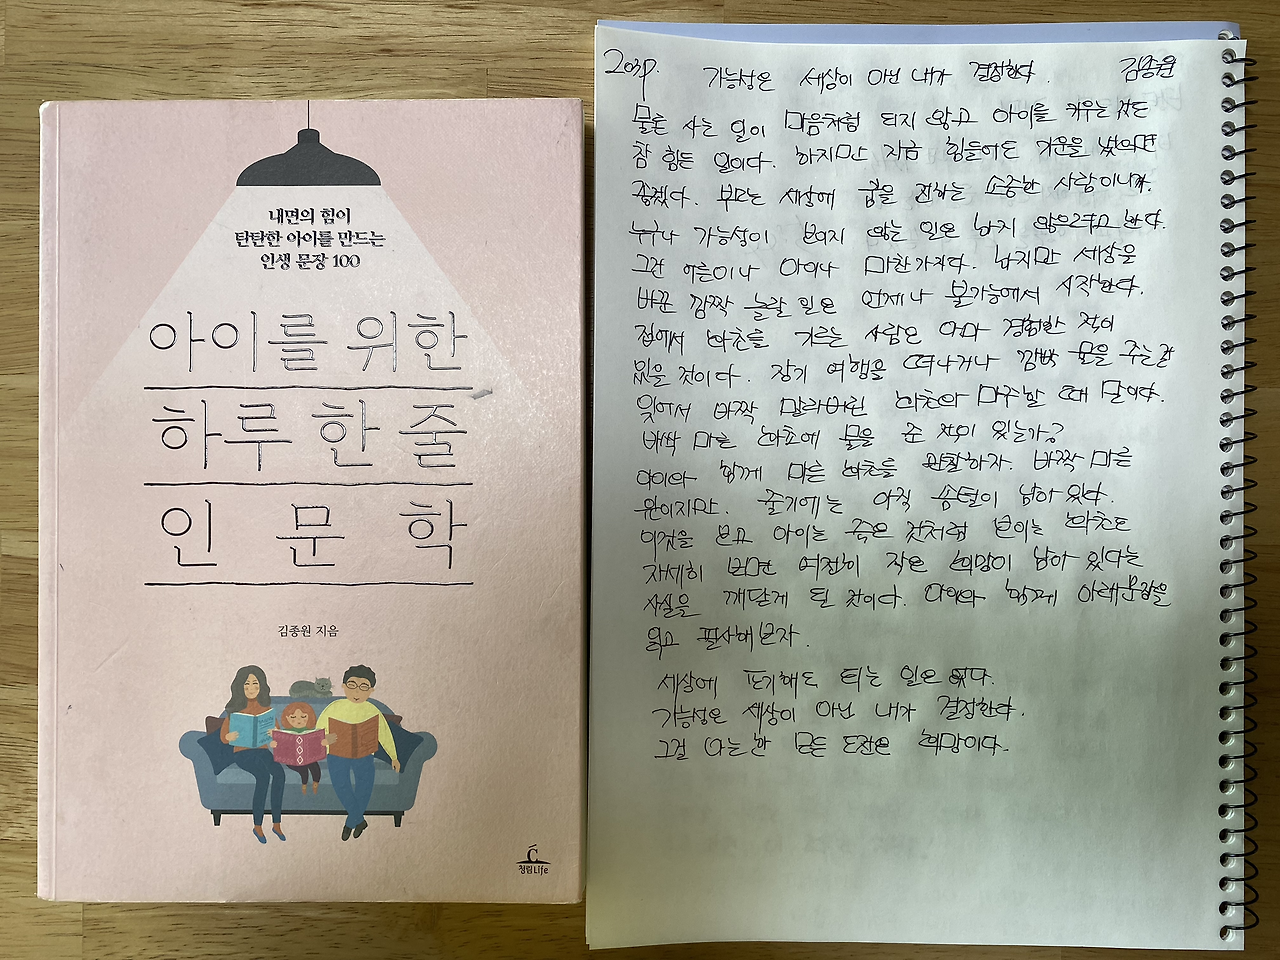 내면의 힘이
탄탄한 아이를 만드는
인생 문장 100
아이를 위한
하루 한 줄
인문학
김종원 지음
청림Life
203p. 가능성은 세상이 아닌 내가 결정한다. 김종원
물론 사는 일이 마음처럼 되지 않고 아이를 키우는 것도
참 힘든 일이다. 하지만 지금 힘들어도 기운을 냈으면
좋겠다. 부모는 세상에 꿈을 전하는 소중한 사람이니까.
누구나 가능성이 보이지 않는 일은 하지 않으려고 한다.
그건 어른이나 아이나 마찬가지다. 하지만 세상을
바꾼 깜짝 놀랄 일은 언제나 불가능에서 시작한다.
집에서 화초를 기르는 사람은 아마 경험한 적이
있을 것이다. 장기 여행을 떠나거나 깜빡 물을 주는 걸
잊어서 바짝 말라버린 화초와 마주할 때 말이다.
바싹 마른 화초에 물을 준 적이 있는가?
아이와 함께 마른 화초를 관찰하자. 바짝 마른
잎이지만. 줄기에는 아직 솜털이 남아 있다.
이것을 보고 아이는 죽은 것처럼 보이는 화초도
자세히 보면 여전히 작은 희망이 남아 있다는
사실을 깨닫게 될 것이다. 아이와 함께 아래 문장을
읽고 필사해보자.
세상에 포기해도 되는 일은 없다.
가능성은 세상이 아닌 내가 결정한다.
그걸 아는 한 모든 도전은 희망이다.